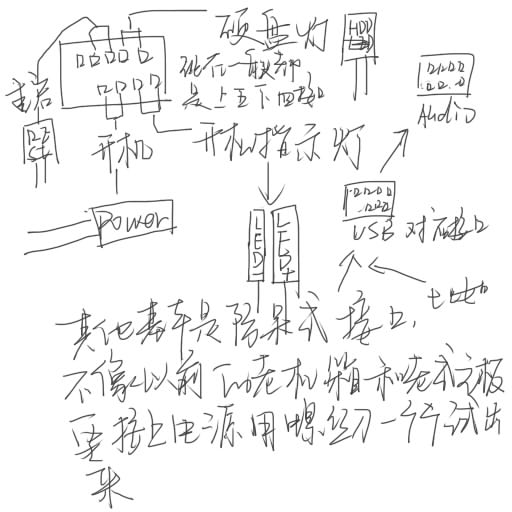 硬盘灯
HDD
LED
现在一般都
是上五下四接口
重启
开机
开机指示灯
Audio
Power
LED-
LED+
USB 对应接口
其他基本是防呆式接口,
不像以前的老机箱和老式主板
要接上电源用螺丝刀一个个试出
来